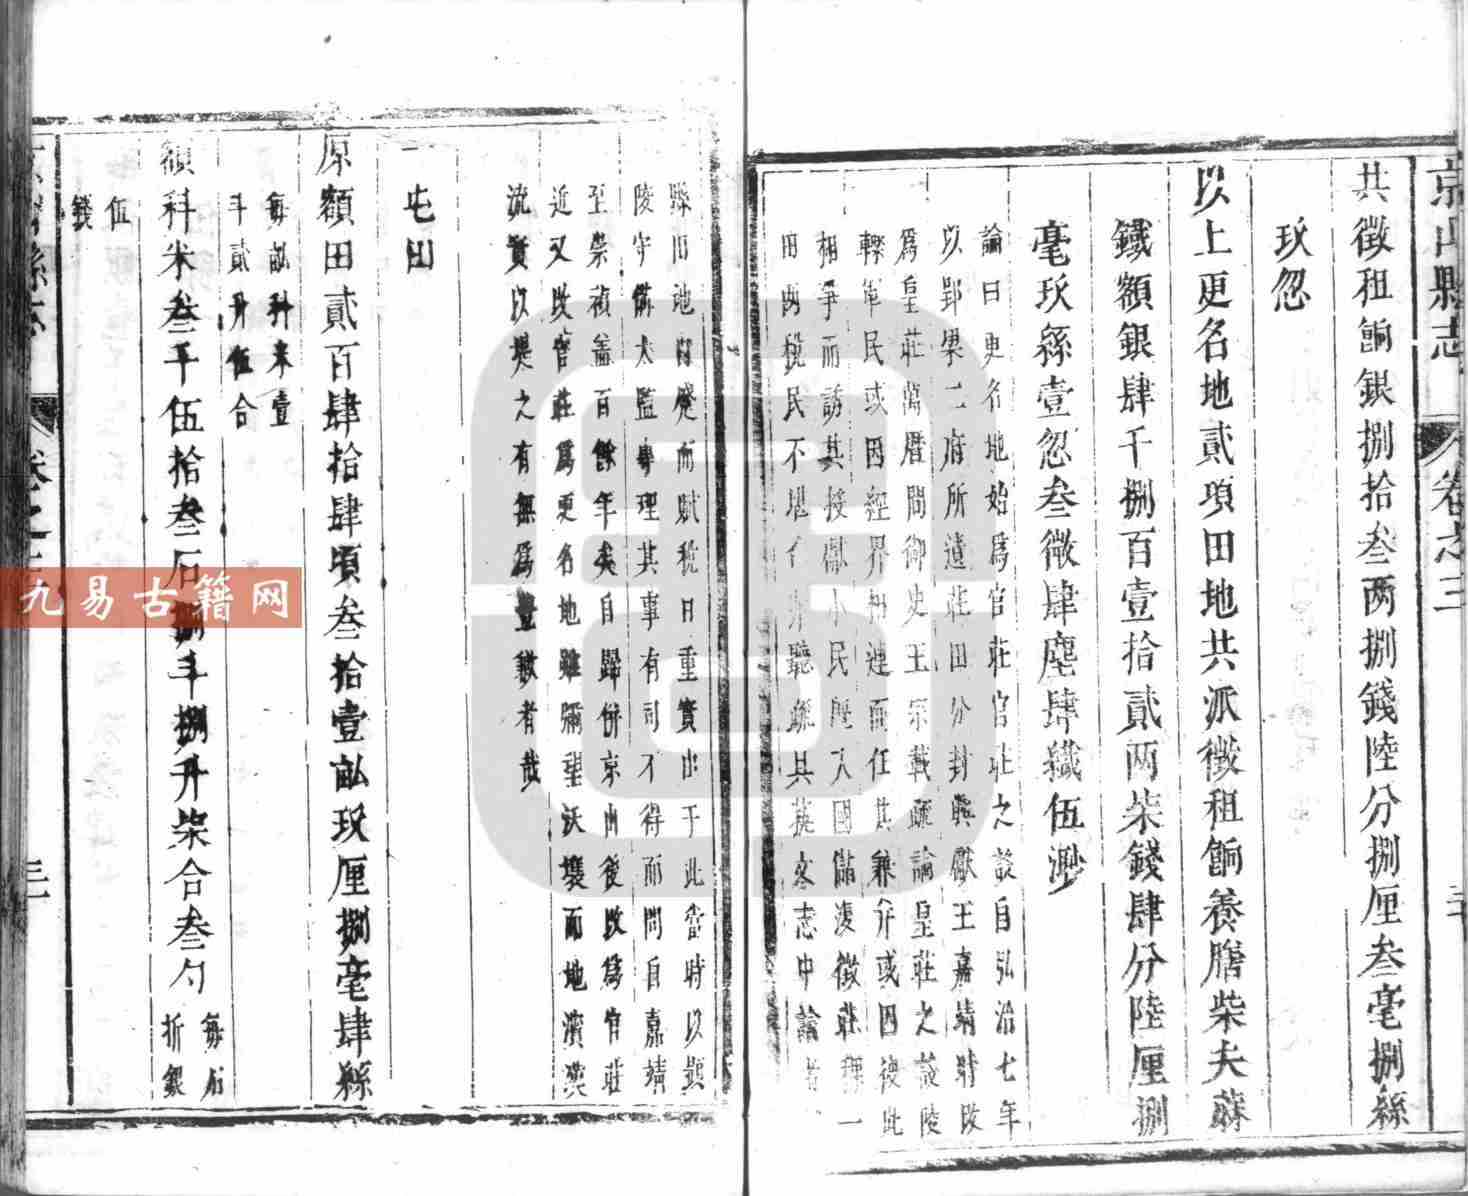 京山縣志
卷之三
共徵租餉銀捌拾叁两捌錢陸分捌厘叁毫捌絲
玖忽
以上更名地貳項田地共派徵租餉養膳柴夫蔴
鐵額銀肆千捌百壹拾貳两柒錢肆分陸厘捌
毫玖絲壹忽叁微肆塵肆纖伍渺
論曰更名地始爲官莊官莊之設自弘治七年
以郢梁二府所遺莊田分封興獻王嘉靖時改
爲皇莊萬曆間御史王宗載疏論皇莊之設陵
軍民或因經界相連而任其兼并或因彼此
相爭而誘其投獻小民既入國儲復徵莊課一
田两稅民不堪
志中論
縣田地日廢而賦稅日重實由于此當時以顯
陵守備太監專理其事有司不得而問自嘉靖
至崇禎盖百餘年矣自歸併京山後改爲官莊
近又改官莊爲更名地雖彌望沃壤而地濱漢
流實以堤之有無爲豐歉者哉
一屯田
原額田貳百肆拾肆頃叁拾壹畝玖厘捌毫肆絲
每畝科米壹
斗貳升伍合
額科米叁千伍拾叁石捌斗捌升柒合叁勺
每石
折銀
伍
錢
九易古籍网